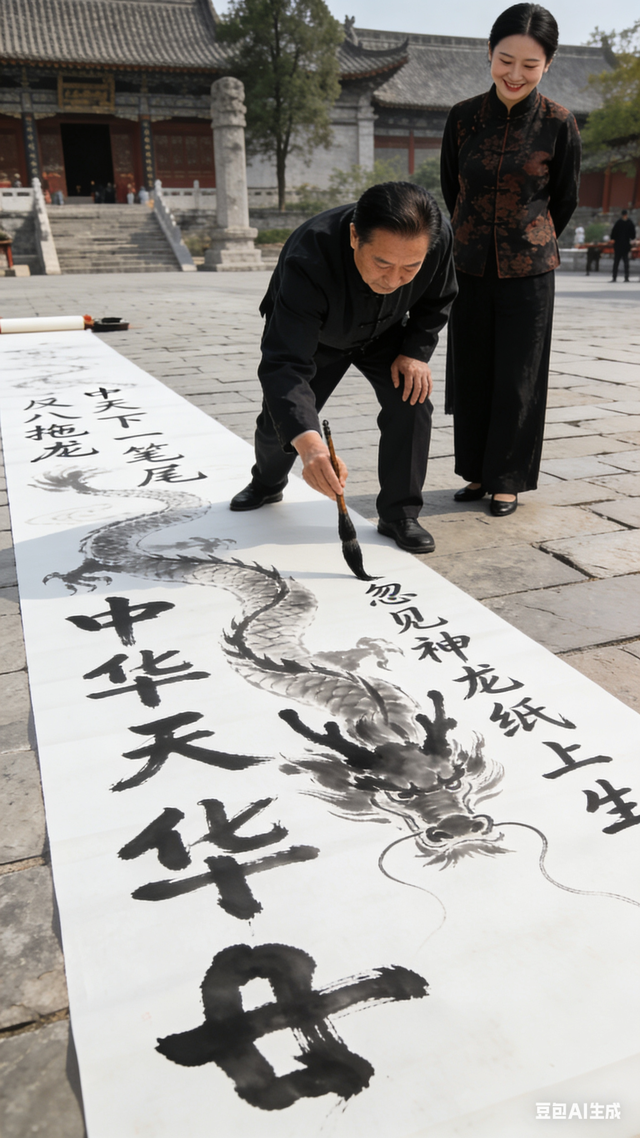 中天下一笔尾
反八拖龙
忽见神龙纸上生
中华天华
豆包AI生成